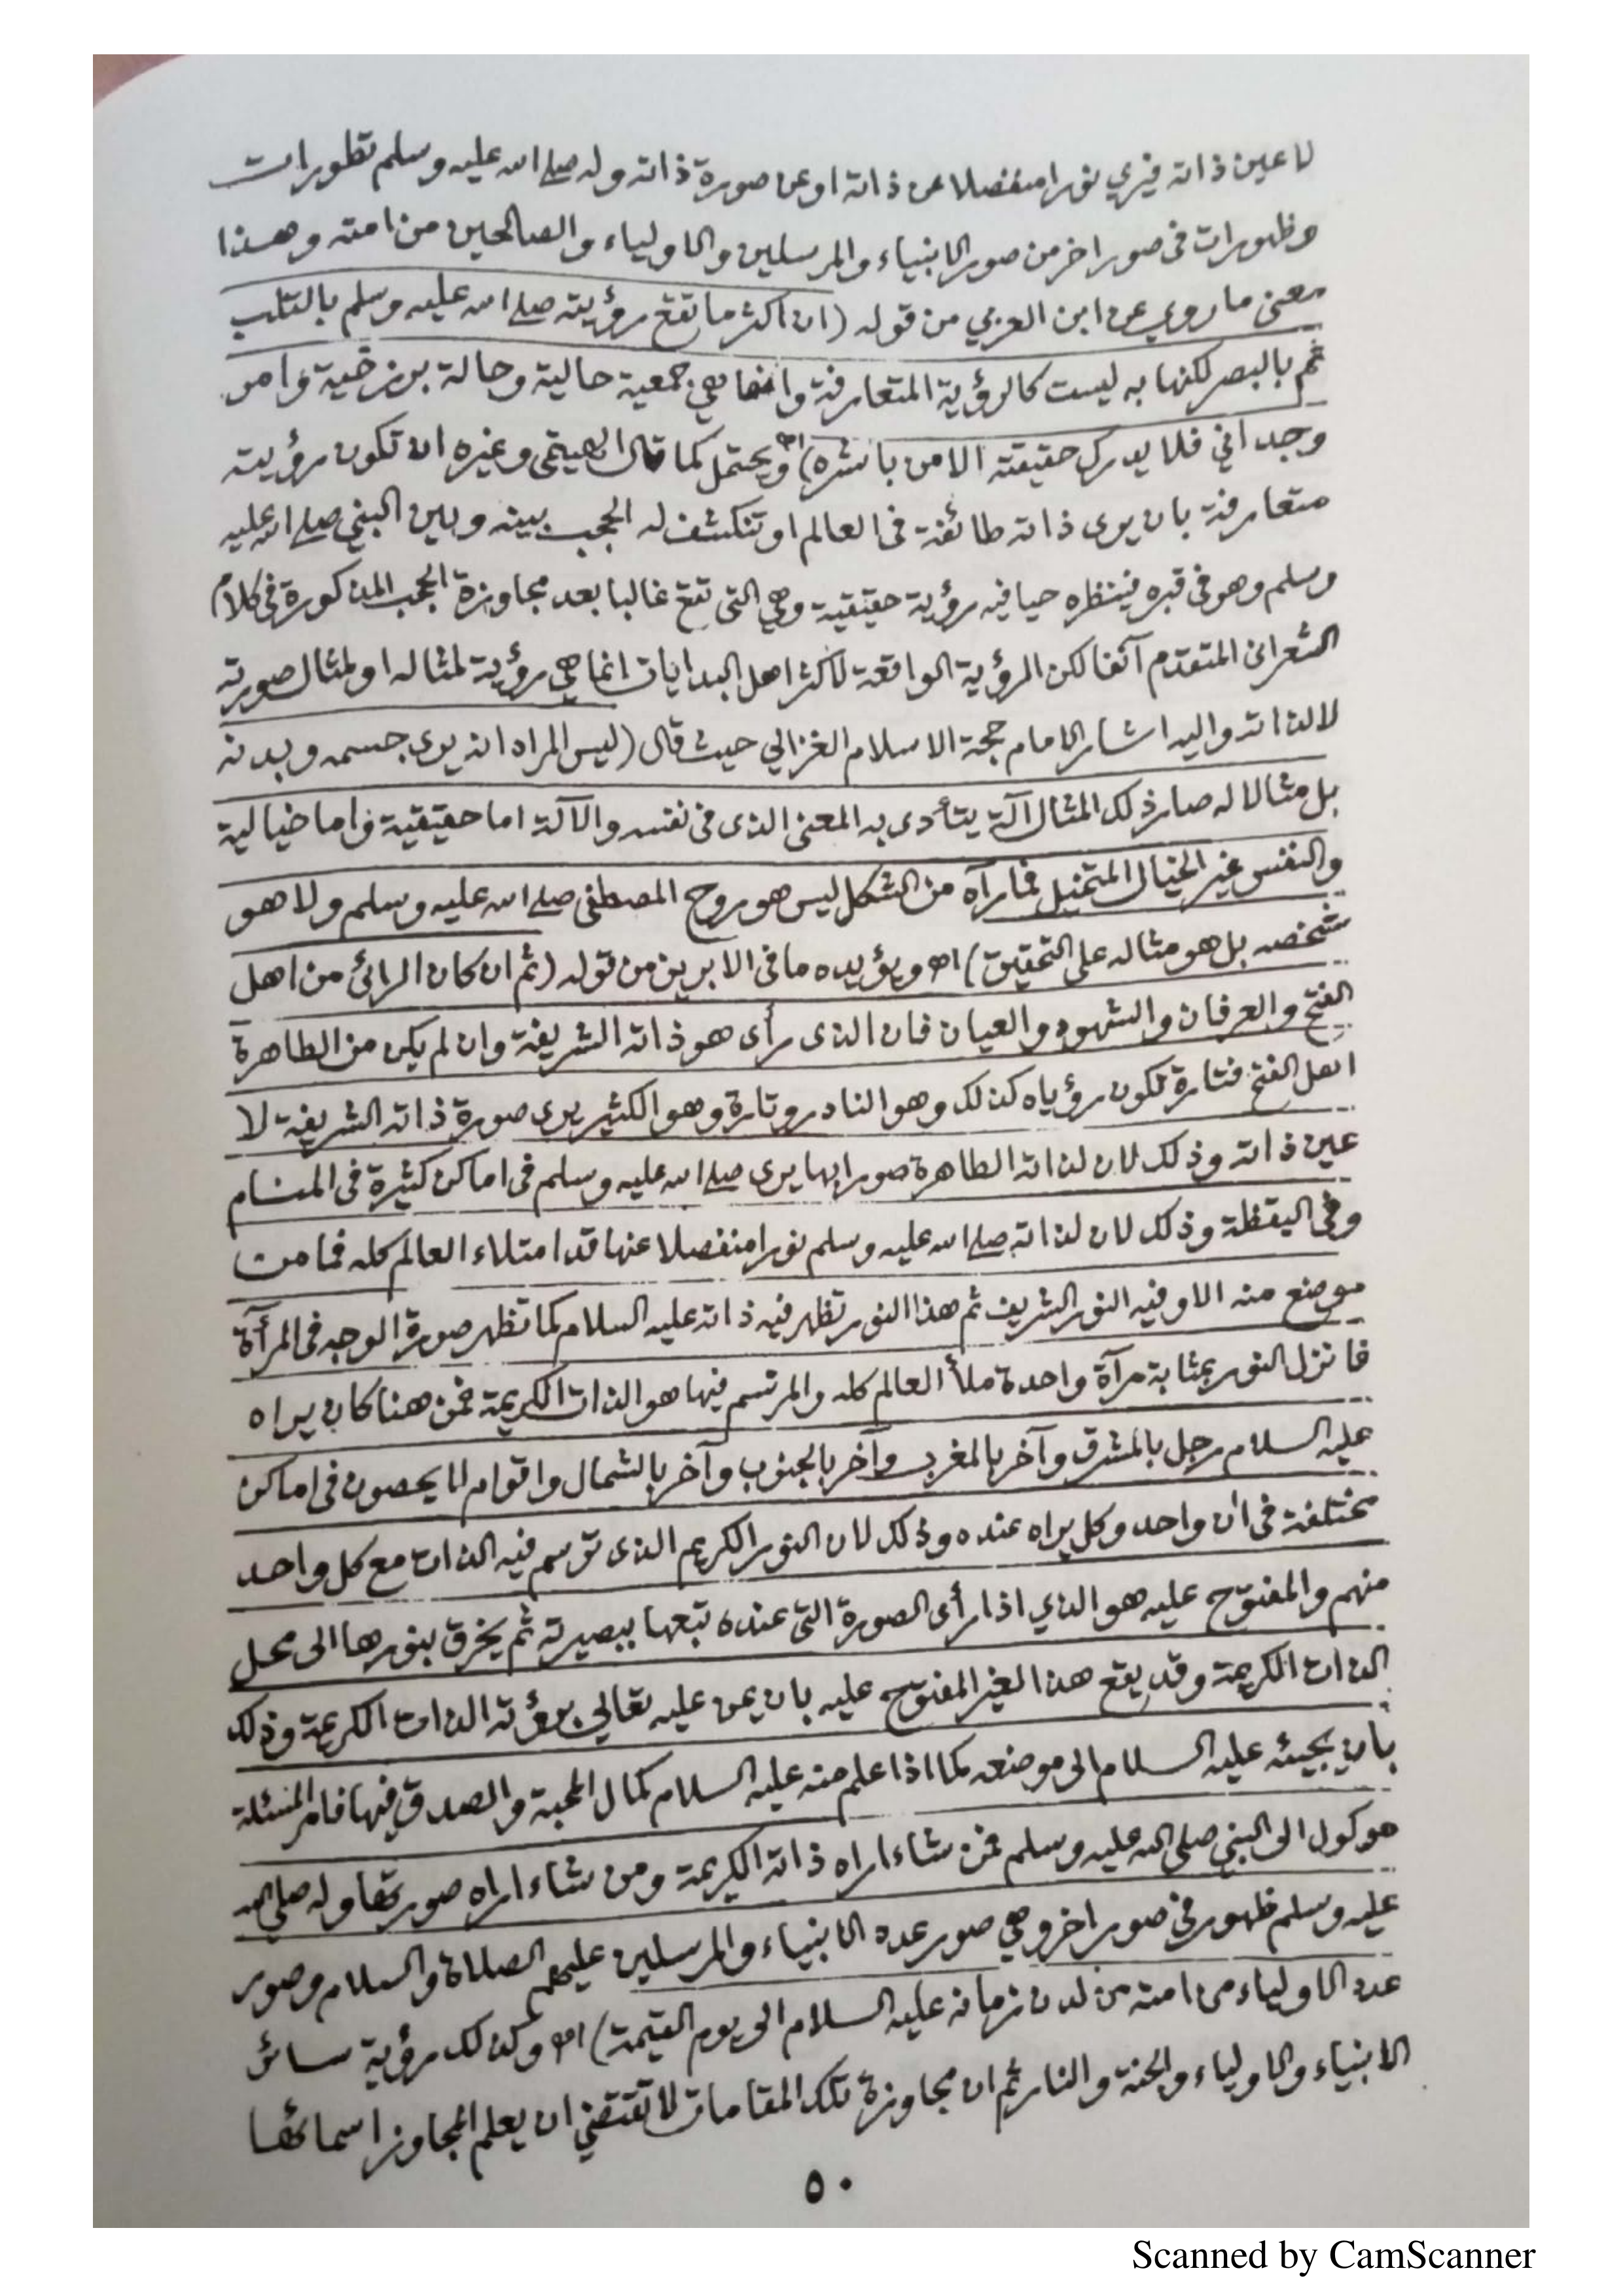 لا عين ذاته فيري نورا منفصلا عن ذاته او عن صورة ذاته وله صلے الله عليه وسلم تطورات
وظهورات فى صور اخر من صور الانبياء والمرسلين والاولياء والصالحين من امته وهذا
معنى ما روي عن ابن العربي من قوله (ان اكثر ما تقع رؤيته صلے الله عليه وسلم بالقلب
ثم بالبصر لكنها به ليست كالرؤية المتعارفة وانما هي جمعية حالية وحالة برزخية وامر
وجداني فلا يدرك حقيقته الا من باشره) اه ويحتمل كما قال الهيتمى وغيره ان تكون رؤيته
متعارفة بان يرى ذاته طائفة فى العالم او تنكشف له الحجب بينه وبين النبي صلے الله عليه
وسلم وهو فى قبره فينظره حيا فيه رؤية حقيقية وهي التى تقع غالبا بعد مجاوزة الحجب المذكورة فى كلام
الشعرانى المتقدم آنفا لكن الرؤية الواقعة لاكثر اهل البدايات انما هي رؤية لمثاله او لمثال صورته
لا لذاته واليه اشار الامام حجة الاسلام الغزالي حيث قال (ليس المراد انه يرى جسمه وبدنه
بل مثالا له صار ذلك المثال آلة يتأدى به المعنى الذى فى نفسه والآلة اما حقيقية واما خيالية
والنفس غير الخيال المتخيل فما رآه من الشكل ليس هو روح المصطفى صلے الله عليه وسلم ولا هو
شخصه بل هو مثاله على التحقيق) اه ويؤيده ما فى الابريز من قوله (ثم ان كان الرائى من اهل
الفتح والعرفان والشهود والعيان فان الذى رأى هو ذاته الشريفة وان لم يكن من الطاهرة
اهل الفتح فتارة تكون رؤياه كذلك وهو النادر وتارة وهو الكثير يرى صورة ذاته الشريفة لا
عين ذاته وذلك لان لذاته الطاهرة صورا بها يرى صلے الله عليه وسلم فى اماكن كثيرة فى المنام
وفى اليقظة وذلك لان لذاته صلے الله عليه وسلم نورا منفصلا عنها قد امتلاء العالم كله فما من
موضع منه الا وفيه النور الشريف ثم هذا النور تظهر فيه ذاته عليه السلام كما تظهر صورة الوجه فى المرآة
فانزل النور بمثابة مرآة واحدة ملأ العالم كله والمرتسم فيها هو الذات الكريمة فمن هنا كان يراه
عليه السلام رجل بالمشرق وآخر بالمغرب وآخر بالجنوب وآخر بالشمال واقوام لا يحصون فى اماكن
مختلفة فى ان واحد وكل يراه عنده وذلك لان النور الكريم الذى ترسم فيه الذات مع كل واحد
منهم والمفتوح عليه هو الذي اذا رأى الصورة التى عنده تبعها ببصيرته ثم يخرق بنورها الى محل
الذات الكريمة وقد يقع هذا لغير المفتوح عليه بان يمن عليه تعالي برؤية الذات الكريمة وذلك
بان يجيئه عليه السلام الى موضعه كما اذا علم منه عليه السلام كمال المحبة والصدق فيها فامر المسئلة
موكول الى النبي صلى الله عليه وسلم فمن شاء اراه ذاته الكريمة ومن شاء اراه صورتها وله صلى الله
عليه وسلم ظهور فى صور اخر وهي صور عدد الانبياء والمرسلين عليهم الصلاة والسلام وصور
عدد الاولياء من امته من لدن زمانه عليه السلام الى يوم القيمة) اه وكذلك رؤية سائر
الانبياء والاولياء والجنة والنار ثم ان مجاوزة تلك المقامات لا تقتضي ان يعلم المجاوز اسمائها
٥٠
Scanned by CamScanner